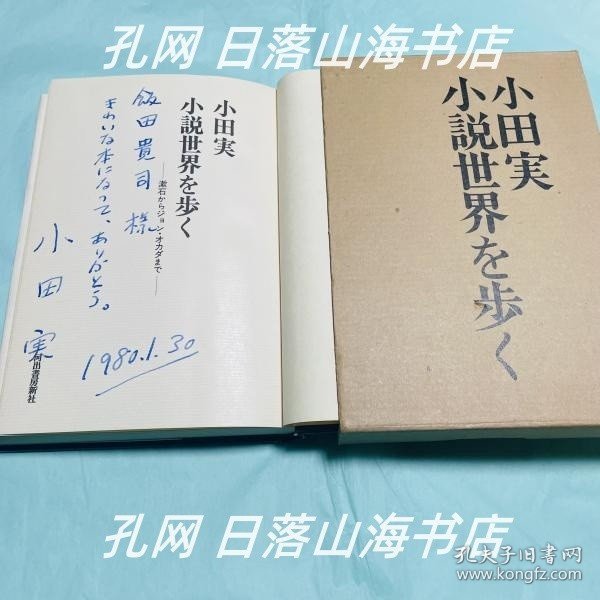 孔网 日落山海书店
小田実
小説世界を歩く
——漱石からジョン・オカダまで——
飯田貴司様
きれいな本になって、ありがとう。
小田実
1980.1.30
河出書房新社
小田実
小説世界を歩く
孔网 日落山海书店
孔网 日落山海书店
孔夫子旧书网
www.kongfz.com